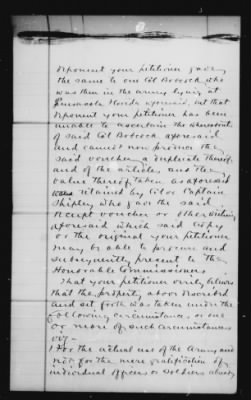 deponent your petitioner gave
the same to one Col Bobcock who
was then in the army lying at
Pensacola Florida aforesaid, but that
deponent your petitioner has been
unable to ascertain the whereabouts
of said Col Bobcock aforesaid
and cannot now produce the
said voucher a duplicate thereof
and of the articles and the
value thereof taken as aforesaid
retained by Col or Captain
Shipley who gave the said
receipt voucher or other writing
aforesaid which said Copy
or the original your petitioner
may be able to procure and
subsequently present to the
Honorable Commissioners
That your petitioner verily believes
that the property above described
and set forth was taken under the
following circumstances or one
or more of such circumstances
viz-
1 For the actual use of the Army and
not for the mere gratification of
individual officers or Soldiers already